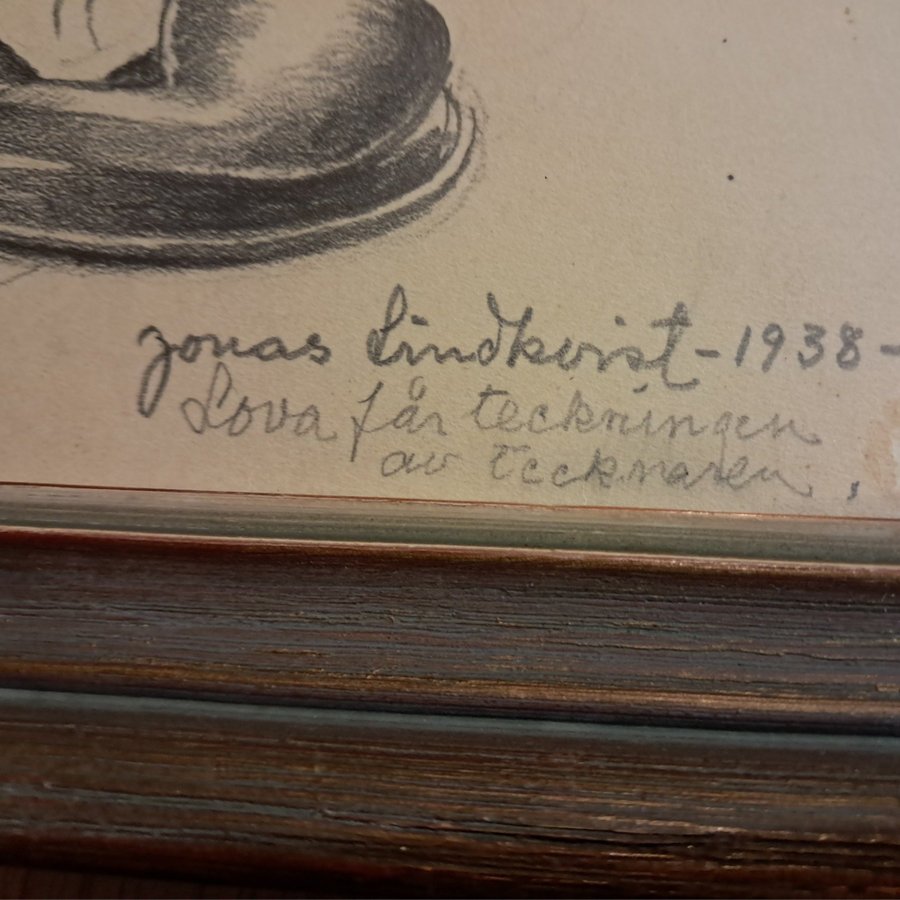 Jonas Lindkvist - 1938 -
Lova får teckningen
av tecknaren.